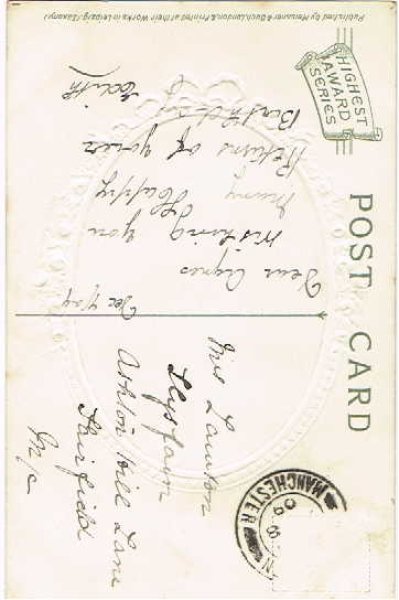 HIGHEST
AWARD
SERIES
POST CARD
Dear Agnes
Wishing you
many Happy
Returns of your
Birthday
Edith
Published by Meissner & Buch, London, & Printed at their Works in Leipzig (Saxony)
Mrs Lawton
Llysfaen
Ashton Hill Lane
Fairfield
M/c
MANCHESTER